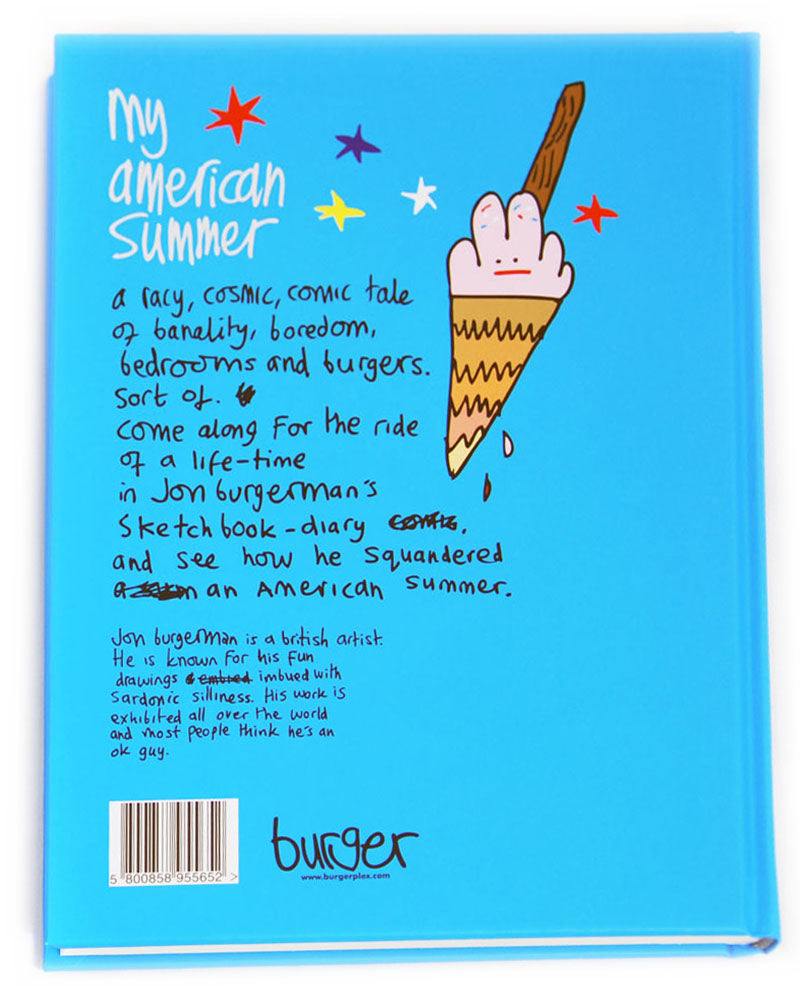 My
american
summer
a racy, cosmic, comic tale
of banality, boredom,
bedrooms and burgers.
sort of.
come along for the ride
of a life-time
in Jon burgerman's
sketchbook-diary
and see how he squandered
an American summer.
Jon burgerman is a british artist.
He is known for his fun
drawings imbued with
sardonic silliness. His work is
exhibited all over the world
and most people think he's an
ok guy.
5 800858 955652 >
burger
www.burgerplex.com